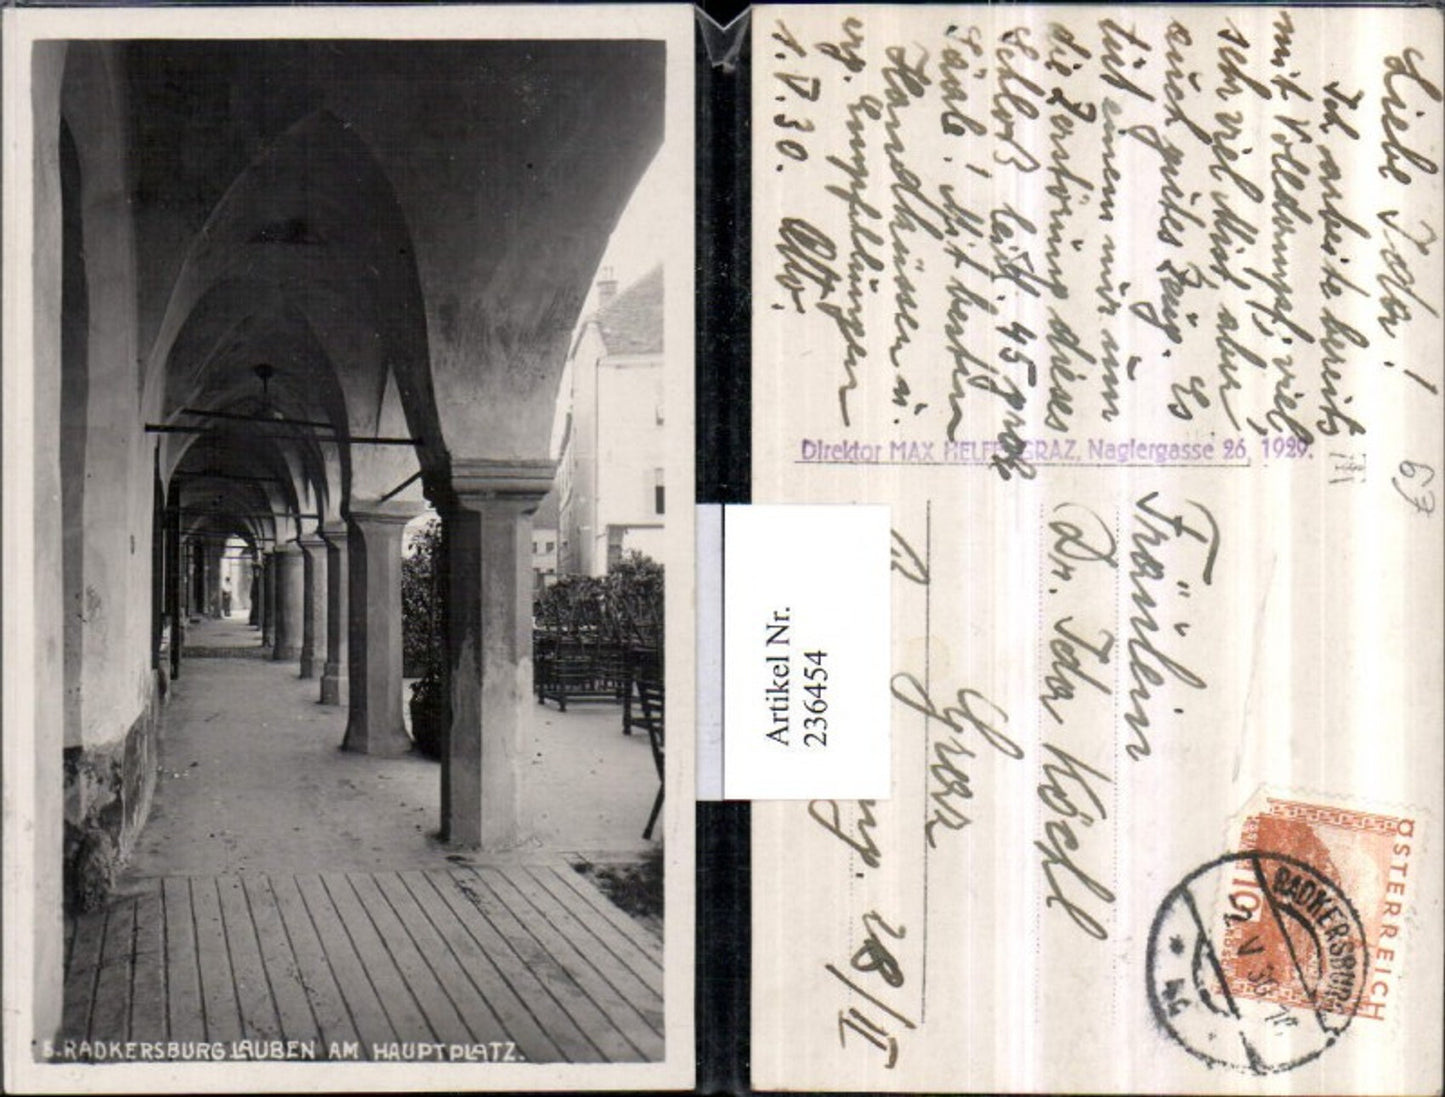 5. RADKERSBURG LAUBEN AM HAUPTPLATZ.
Artikel Nr.
236454
67
Liebe Ida!
Ich arbeite bereits
mit Volldampf, viel,
sehr viel Mist, aber
auch gutes Zeug. Es
tut einem nur um
die Zerstörung dieses
Schloß leid, 45 große
Säale! Mit besten
Handküssen u.
erg. Empfehlungen
1.V.30. Otto.
Direktor MAX GRAZ, Naglergasse 26, 1929.
Fräulein
Dr. Ida Köchl
Graz
28/II
ÖSTERREICH
10
RADKERSBURG